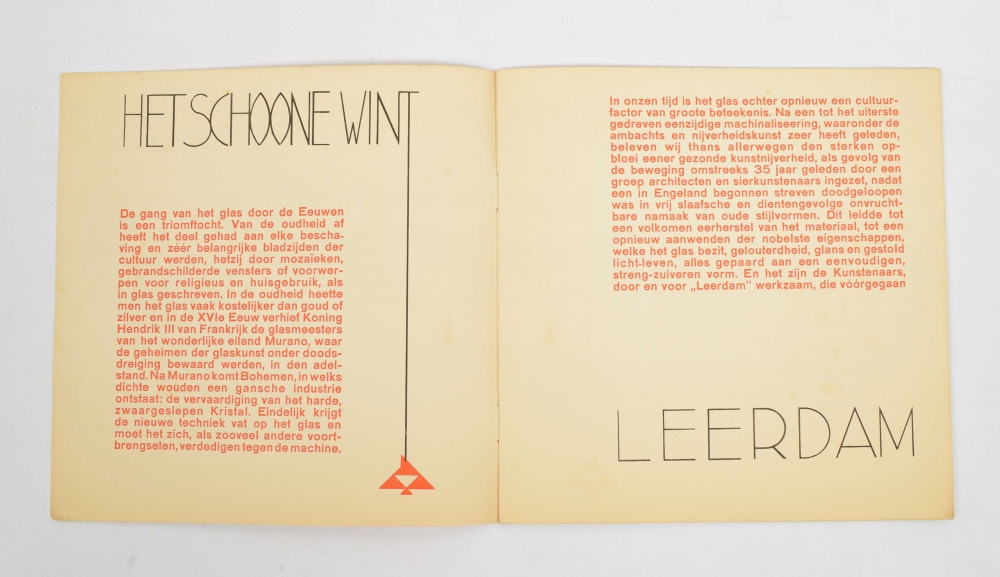 HET SCHOONE WINT
De gang van het glas door de Eeuwen
is een triomftocht. Van de oudheid af
heeft het deel gehad aan elke bescha-
ving en zéér belangrijke bladzijden der
cultuur werden, hetzij door mozaïeken,
gebrandschilderde vensters of voorwer-
pen voor religieus en huisgebruik, als
in glas geschreven. In de oudheid heette
men het glas vaak kostelijker dan goud of
zilver en in de XVIe Eeuw verhief Koning
Hendrik III van Frankrijk de glasmeesters
van het wonderlijke eiland Murano, waar
de geheimen der glaskunst onder doods-
dreiging bewaard werden, in den adel-
stand. Na Murano komt Bohemen, in welks
dichte wouden een gansche industrie
ontstaat: de vervaardiging van het harde,
zwaargeslepen Kristal. Eindelijk krijgt
de nieuwe techniek vat op het glas en
moet het zich, als zooveel andere voort-
brengselen, verdedigen tegen de machine.
In onzen tijd is het glas echter opnieuw een cultuur-
factor van groote beteekenis. Na een tot het uiterste
gedreven eenzijdige machinaliseering, waaronder de
ambachts en nijverheidskunst zeer heeft geleden,
beleven wij thans allerwegen den sterken op-
bloei eener gezonde kunstnijverheid, als gevolg van
de beweging omstreeks 35 jaar geleden door een
groep architecten en sierkunstenaars ingezet, nadat
een in Engeland begonnen streven doodgeloopen
was in vrij slaafsche en dientengevolge onvrucht-
bare namaak van oude stijlvormen. Dit leidde tot
een volkomen eerherstel van het materiaal, tot een
opnieuw aanwenden der nobelste eigenschappen,
welke het glas bezit, gelouterdheid, glans en gestold
licht-leven, alles gepaard aan een eenvoudigen,
streng-zuiveren vorm. En het zijn de Kunstenaars,
door en voor „Leerdam” werkzaam, die vóórgegaan
LEERDAM